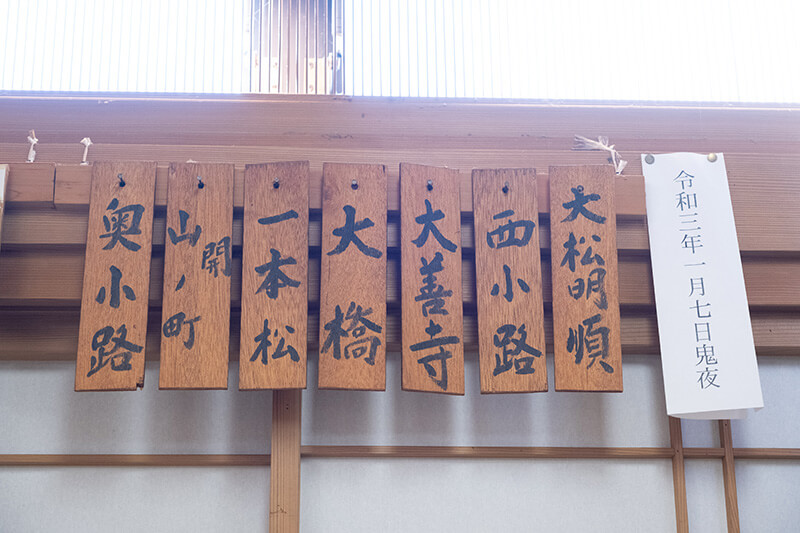 令和三年一月七日鬼夜
大松明順
西小路
大善寺
大橋
一本松
開
山ノ町
奥小路